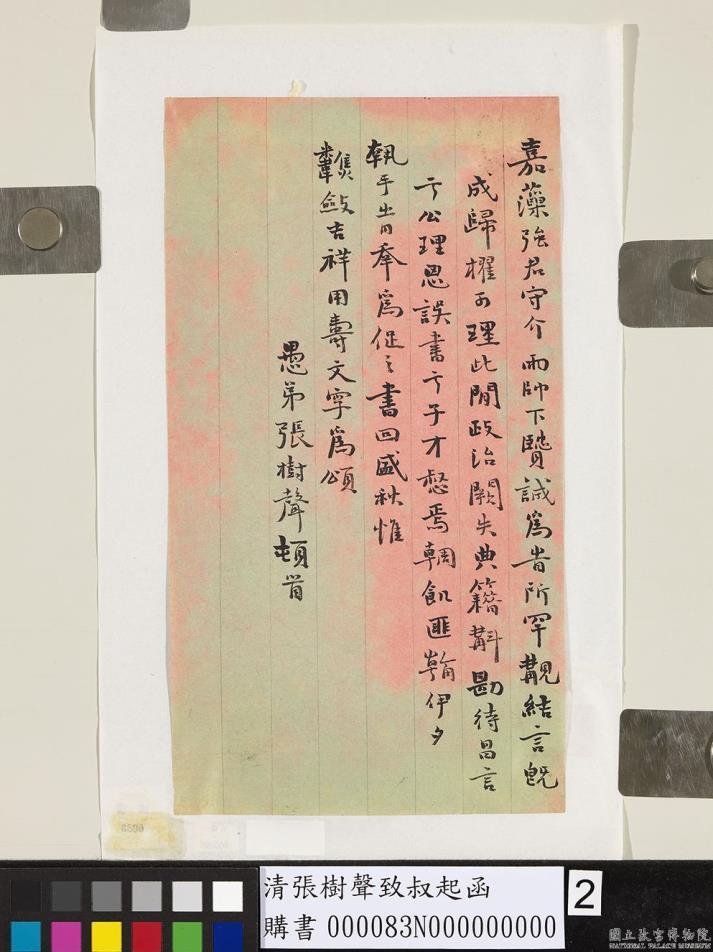 嘉藻強君守介而帥下贒誠為昔所罕覯結言旣
成歸櫂可理此閒政治闕失典籍斠勘待昌言
亏公理思誤書亏子才惄焉輖飢匪翰伊夕
執手出日奉爲促之書回盛秋惟
斂吉祥用壽文字爲頌
愚弟張樹聲頓首
清張樹聲致叔起函
購書 000083N000000000
2
國立故宮博物院
NATIONAL PALACE MUSEUM